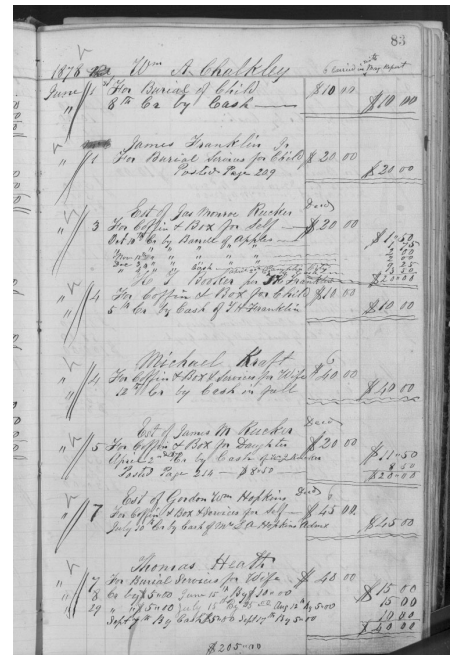 83
1878 Wm A Chalkley 6 buried in this Rept
June 1st For Burial of Child $10 00
" 8th Cr by Cash $10 00
James Franklin Jr
" 1 For Burial Services for Child $20.00
Posted Page 229 $20 00
Est of Jas Monroe Rucker Decd
" 3 For Coffin & Box for Self $20.00
Oct 10th Cr by Barrel of Apples $1.50
" " " " "
Dec " " Cash
$20.00
H Rucker for Franklin
" 4 For Coffin & Box for Child $10.00
5th Cr by Cash of T H Franklin $10 00
Michael Kraft
" 4 For Coffin & Box & Services for Wife $40 00
12th Cr by Cash in full $40.00
Est of James M Rucker Decd
" 5 For Coffin & Box for Daughter $20 00
April Cr by Cash $11.50
Posted Page 214 $8.50 8 50
$20.00
Est of Gordon Wm Hopkins Decd
" 7 For Coffin & Box & Services for Self $45 00
July 10th Cr by Cash of Mrs Hopkins Admx $45.00
Thomas Heath
" 7 For Burial Services for Wife $40 00
" 8 Cr by $5.00 June 15th By $10.00 $15 00
" 29 " of $5.00 July 15th By $5.00 Aug 12th By 5.00 15 00
Sept 7th By Cash $5.00 Sept 17th By 5.00 10 00
$40 00
$205.00